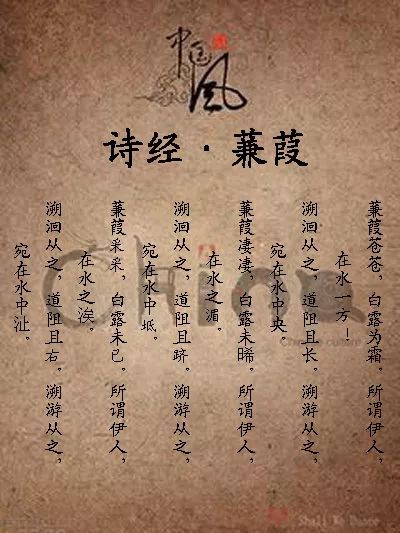 中国风
诗经·蒹葭
蒹葭苍苍，白露为霜。所谓伊人，
在水一方！
溯洄从之，道阻且长。溯游从之，
宛在水中央。
蒹葭凄凄，白露未晞。所谓伊人，
在水之湄。
溯洄从之，道阻且跻。溯游从之，
宛在水中坻。
蒹葭采采，白露未已。所谓伊人，
在水之涘。
溯洄从之，道阻且右。溯游从之，
宛在水中沚。
China
Shall We Dance